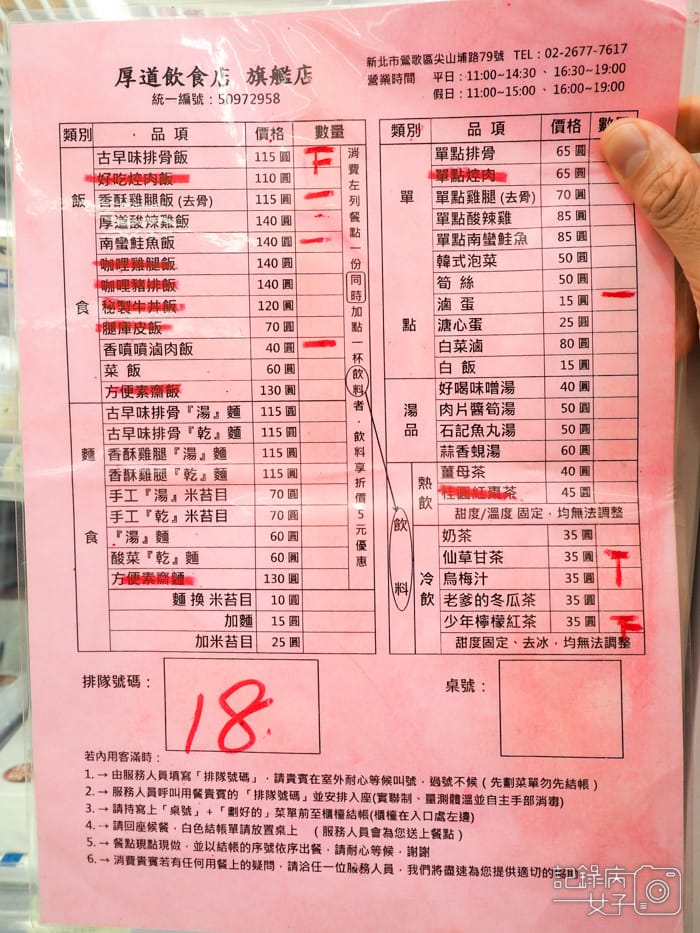 厚道飲食店 旗艦店
統一編號：50972958
新北市鶯歌區尖山埔路79號 TEL：02-2677-7617
營業時間 平日：11:00~14:30 、 16:30~19:00
假日：11:00~15:00 、 16:00~19:00
類別 品項 價格 數量
飯食
古早味排骨飯 115圓
好吃焢肉飯 110圓
香酥雞腿飯(去骨) 115圓
厚道酸辣雞飯 140圓
南蠻鮭魚飯 140圓
咖哩雞腿飯 140圓
咖哩豬排飯 140圓
秘製牛丼飯 120圓
腿庫皮飯 70圓
香噴噴滷肉飯 40圓
菜飯 60圓
方便素齋飯 130圓
麵食
古早味排骨『湯』麵 115圓
古早味排骨『乾』麵 115圓
香酥雞腿『湯』麵 115圓
香酥雞腿『乾』麵 115圓
手工『湯』米苔目 70圓
手工『乾』米苔目 70圓
『湯』麵 60圓
酸菜『乾』麵 60圓
方便素齋麵 130圓
麵換米苔目 10圓
加麵 15圓
加米苔目 25圓
消費左列餐點一份同時加點一杯飲料者，飲料享折價5元優惠
類別 品項 價格 數
單點
單點排骨 65圓
單點焢肉 65圓
單點雞腿(去骨) 70圓
單點酸辣雞 85圓
單點南蠻鮭魚 85圓
韓式泡菜 50圓
筍絲 50圓
滷蛋 15圓
溏心蛋 25圓
白菜滷 80圓
白飯 15圓
湯品
好喝味噌湯 40圓
肉片醬筍湯 50圓
石記魚丸湯 50圓
蒜香蜆湯 60圓
飲料
熱飲
薑母茶 40圓
桂圓紅棗茶 45圓
甜度/溫度 固定，均無法調整
冷飲
奶茶 35圓
仙草甘茶 35圓
烏梅汁 35圓
老爹的冬瓜茶 35圓
少年檸檬紅茶 35圓
甜度固定、去冰，均無法調整
排隊號碼： 18
桌號：
若內用客滿時：
1.→由服務人員填寫「排隊號碼」，請貴賓在室外耐心等候叫號，過號不候（先劃菜單勿先結帳）
2.→服務人員呼叫用餐貴賓的「排隊號碼」並安排入座(實聯制、量測體溫並自主手部消毒)
3.→請持寫上「桌號」+「劃好的」菜單前至櫃檯結帳(櫃檯在入口處左邊)
4.→請回座候餐，白色結帳單請放置桌上 （服務人員會為您送上餐點）
5.→餐點現點現做，並以結帳的序號依序出餐，請耐心等候，謝謝
6.→消費貴賓若有任何用餐上的疑問，請洽任一位服務人員，我們將盡速為您提供適切的協助
記錄病
女子